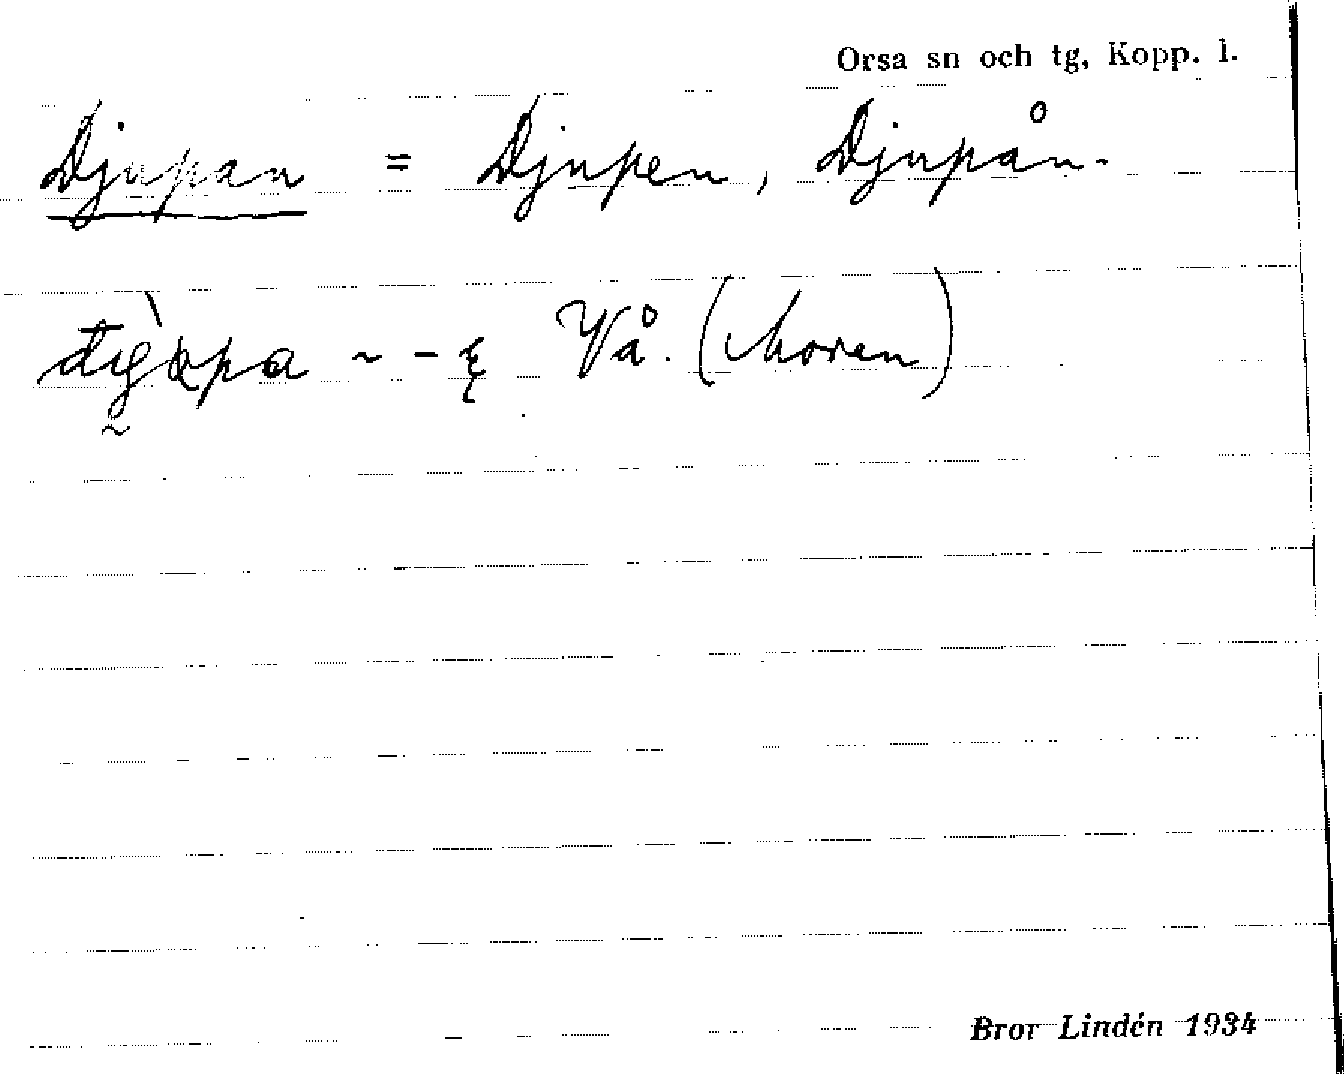 Orsa sn och tg, Kopp. l.
Djupan = Djupen, Djupån.
Vå. (Moren)
Bror Lindén 1934